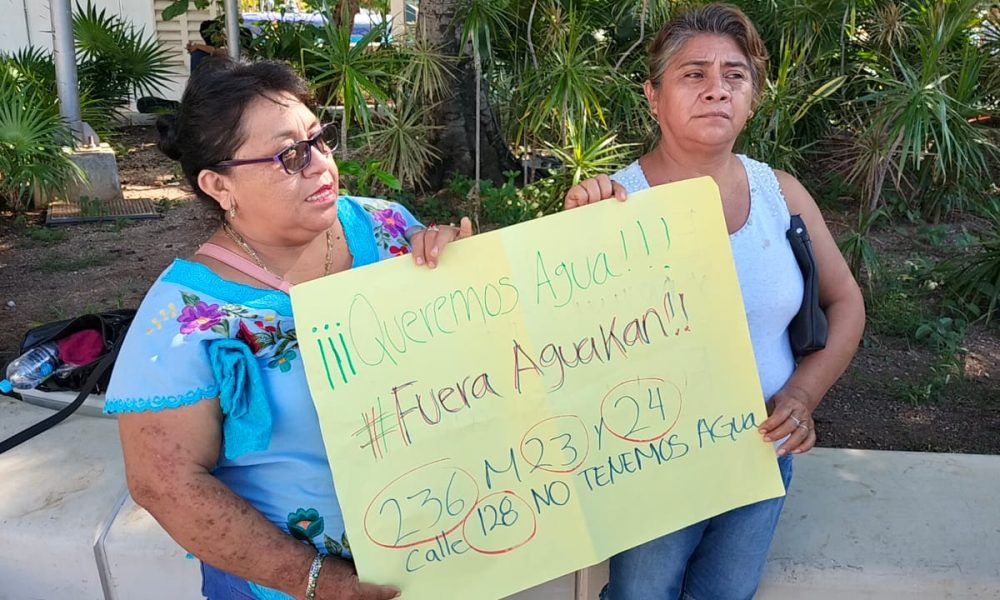 ¡¡¡Queremos Agua!!!
#Fuera AguaKan!!
236 M 23 Y 24
Calle 128 NO TENEMOS AGUA